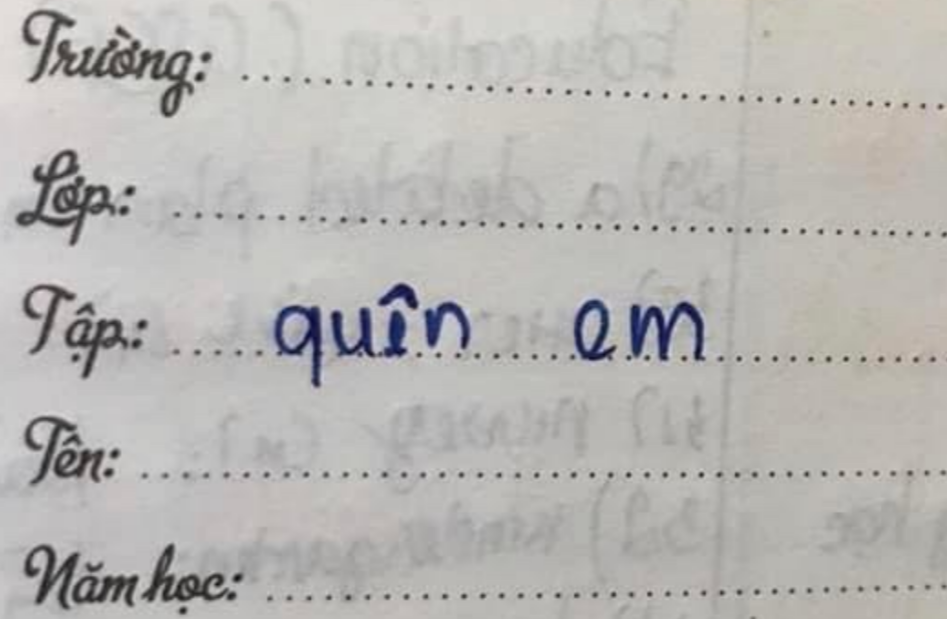 Trường:
Lớp:
Tập: quên em
Tên:
Năm học: